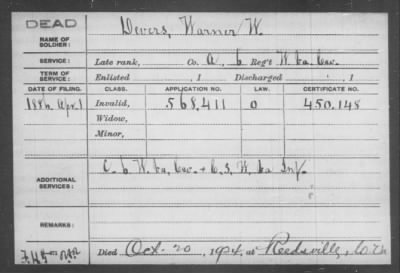 DEAD
NAME OF SOLDIER: Devers, Warner W.
SERVICE: Late rank, Co. A, 6 Reg't W. Va. Cav.
TERM OF SERVICE: Enlisted , 1 Discharged , 1
DATE OF FILING. CLASS. APPLICATION NO. LAW. CERTIFICATE NO.
Apr. 1 Invalid, 568,411 0 450,148
Widow,
Minor,
ADDITIONAL SERVICES: C. 6 W. Va. Cav. + C. 3, W. Va Inf.
REMARKS:
Died Oct. 20, at Reedsville,